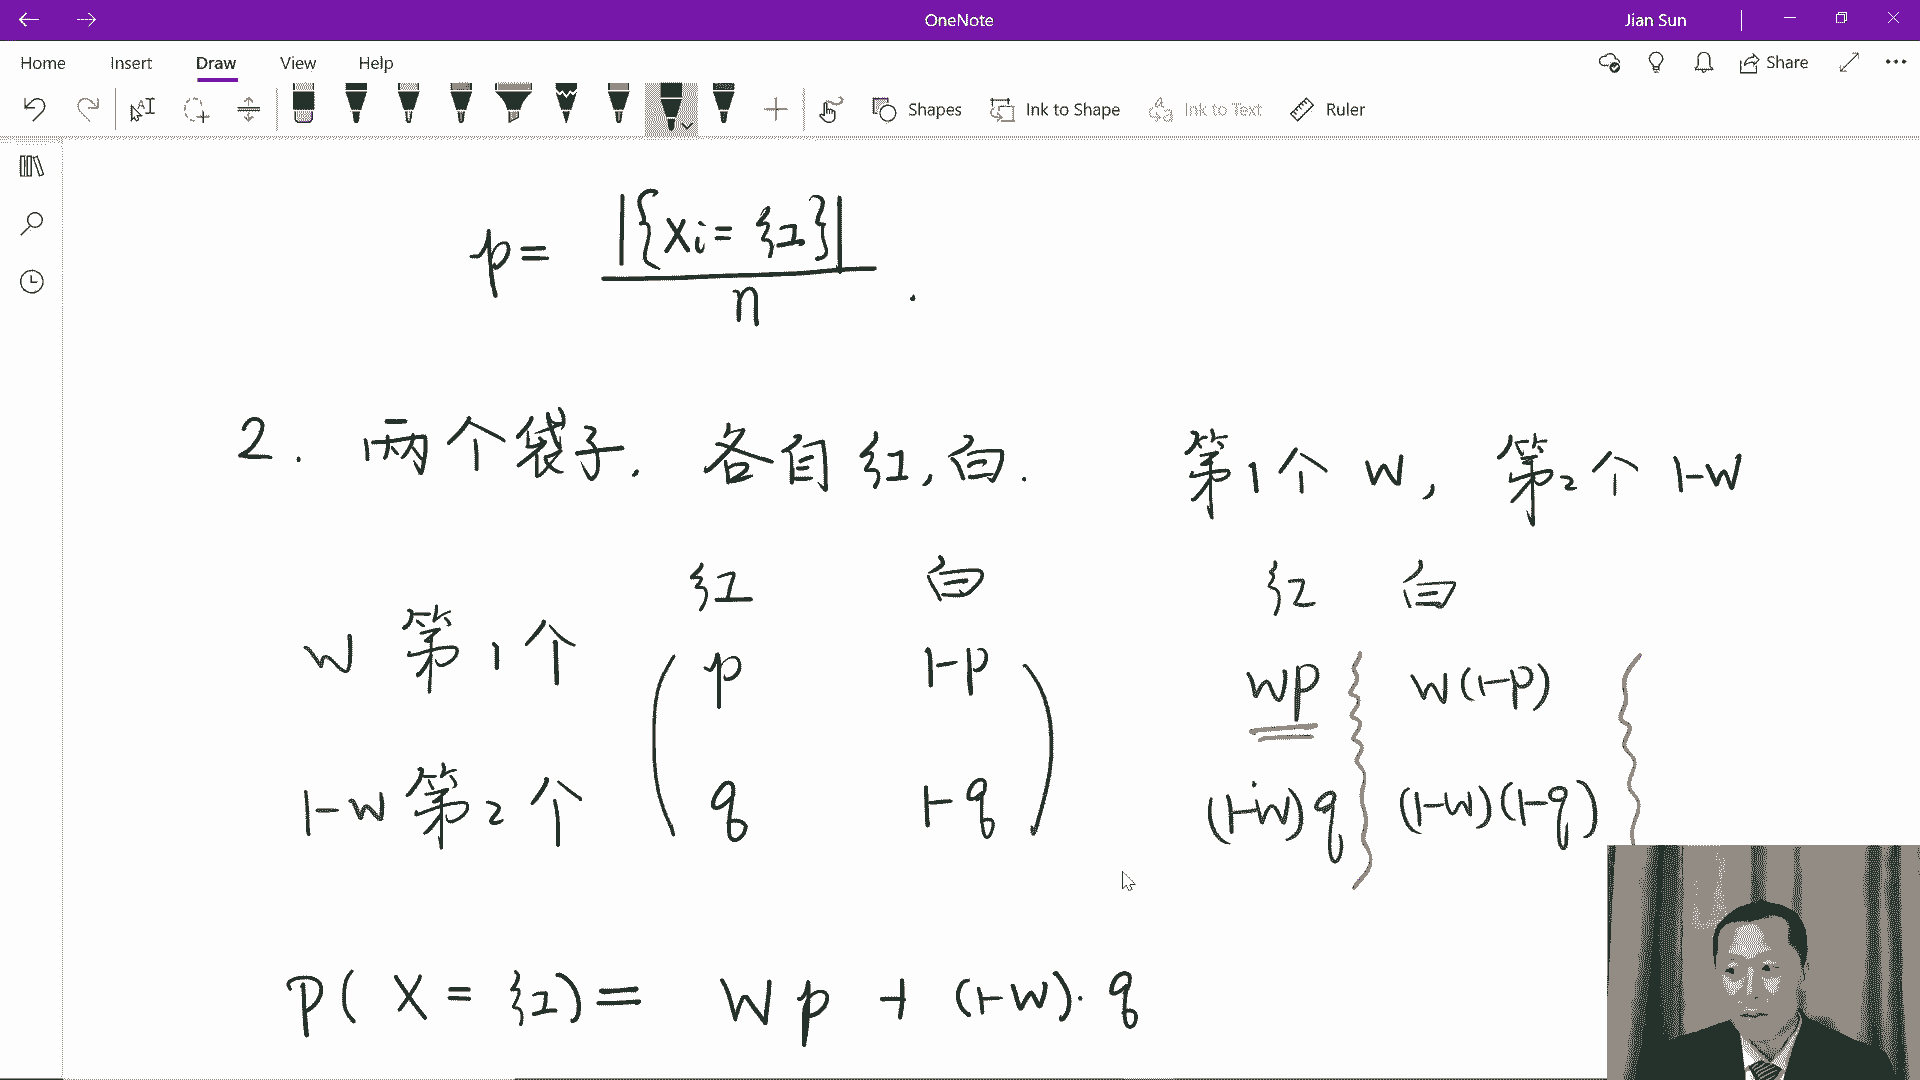 OneNote
Jian Sun
Home Insert Draw View Help
Share
Shapes Ink to Shape Ink to Text Ruler
p = |{Xi = 红}| / n .
2. 两个袋子. 各自红,白. 第1个 w, 第2个 1-w
红 白 红 白
w 第1个 ( p 1-p ) wp w(1-p)
1-w 第2个 ( q 1-q ) (1-w)q (1-w)(1-q)
P( X = 红) = w p + (1-w)· q